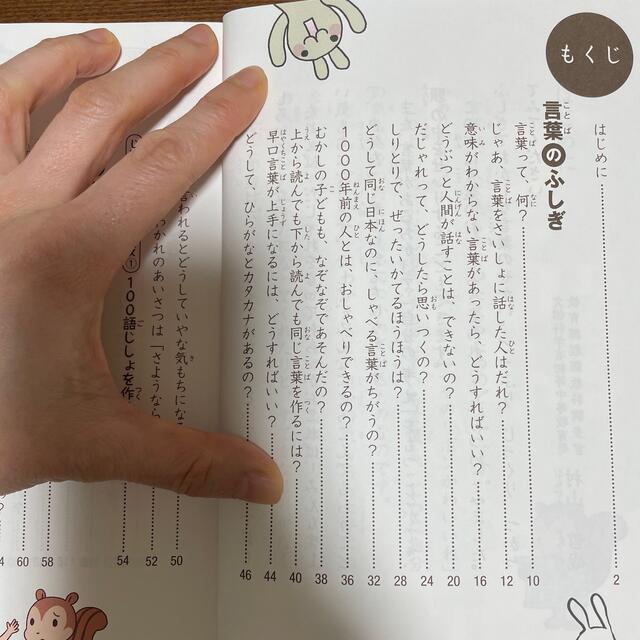 もくじ
はじめに 2
言葉のふしぎ
言葉って、何? 10
じゃあ、言葉をさいしょに話した人はだれ? 12
意味がわからない言葉があったら、どうすればいい? 16
どうぶつと人間が話すことは、できないの? 20
だじゃれって、どうしたら思いつくの? 24
しりとりで、ぜったいかてるほうほうは? 28
どうして同じ日本なのに、しゃべる言葉がちがうの? 32
1000年前の人とは、おしゃべりできるの? 36
むかしの子どもも、なぞなぞであそんだの? 38
上から読んでも下から読んでも同じ言葉を作るには? 40
早口言葉が上手になるには、どうすればいい? 44
どうして、ひらがなとカタカナがあるの? 46
言われるとどうしていやな気もちになる 50
かれのあいさつは「さような 52
① 100語じしょを作 54
58
60